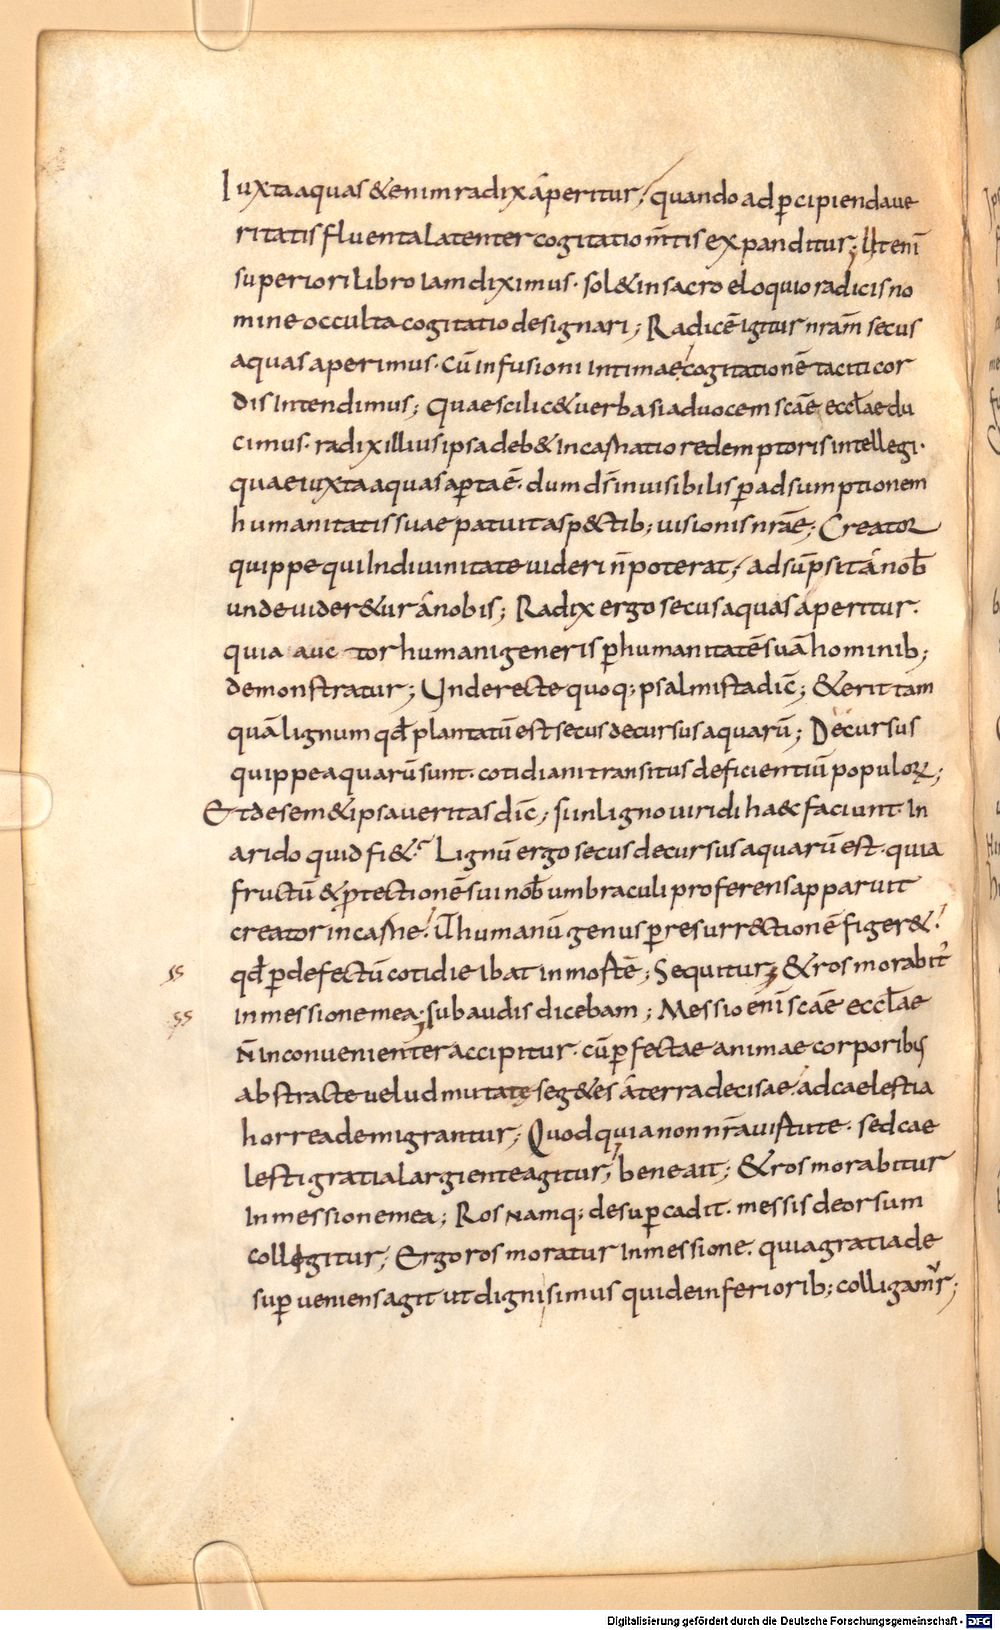 Iuxta aquas & enim radix aperitur, quando ad p̱cipienda ue
ritatis fluenta latenter cogitatio m̄tis expanditur; Ut enī
superiori libro iam diximus· sol& in sacro eloquio radicis no
mine occulta cogitatio designari; Radicē igitur nr̄am secus
aquas aperimus· cū infusioni intimae cogitationē taciti cor
dis intendimus; Quae scilic& uerba si ad uocem sc̄ae eccl̄ae du
cimus· radix illius ipsa deb& incarnatio redemptoris intellegi·
quae iuxta aquas ap̱ta ē· dum d̄s inuisibilis p̱ adsumptionem
humanitatis suae patuit asp&tib; uisionis nr̄ae; Creator
quippe qui in diuinitate uideri n̄ poterat, adsūpsit a nob̄
unde uider&ur a nobis; Radix ergo secus aquas aperitur·
quia auctor humani generis p̱ humanitatē suā hominib;
demonstratur; Unde recte quoq; psalmista dic̄; & erit tam
quā lignum qd̄ plantatū est secus decursus aquarū; Decursus
quippe aquarū sunt· cotidiani transitus deficientiū populorꝝ;
Et de sem&ipsa ueritas dic̄; si in ligno uiridi haec faciunt· in
arido quid fi&? Lignū ergo secus decursus aquarū est· quia
fructū & p̱tectionē sui nob̄ umbraculi proferens apparuit
creator in carne· ut humanū genus p̱ resurr&tionē figer&·
qd̄ p̱ defectū cotidie ibat in mortē; Sequitur; & ros morabit᷒
ss
in messione mea· subaudis dicebam; Messio enī sc̄ae eccl̄ae
ss
n̄ inconuenienter accipitur· cū p̱fectae animae corporibus
abstracte uelud mutatę seg&es a terra decisae· ad caelestia
horrea demigrantur; Quod quia non nr̄a uirtute· sed cae
lesti gratia largiente agitur; bene ait; & ros morabitur
in messione mea; Ros namq; desup̱ cadit· messis deorsum
collegitur; Ergo ros moratur in messione· quia gratia de
sup̱ ueniens agit ut dignisimus qui de inferiorib; colligamur;
Digitalisierung gefördert durch die Deutsche Forschungsgemeinschaft - DFG